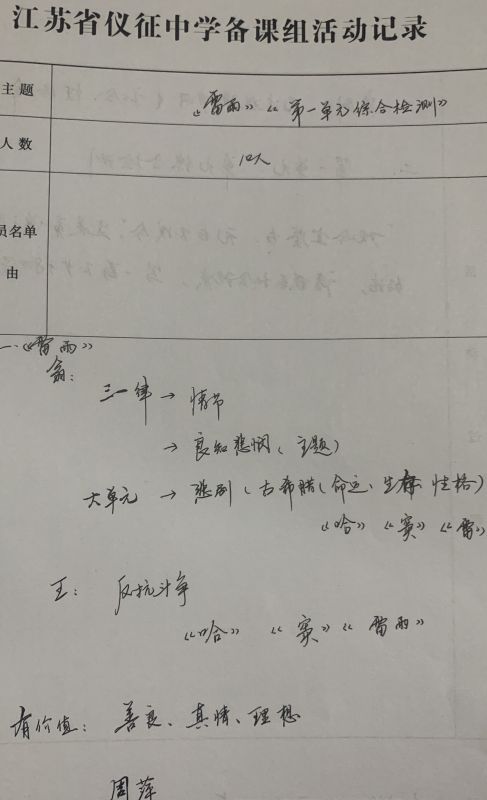 江苏省仪征中学备课组活动记录
主题
《雷雨》《第一单元综合检测》
人数
12人
员名单
由
一.《雷雨》
翁:
三一律 → 情节
→ 良知悲悯(主题)
大单元 → 悲剧(古希腊(命运、生存 性格)
《哈》《窦》《雷》
王: 反抗斗争
《哈》《窦》《雷雨》
有价值: 善良、真情、理想
周萍